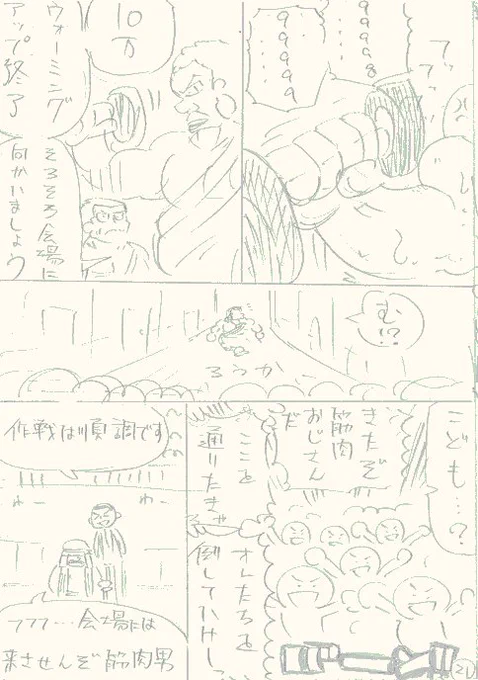 フッ
フッ
99998
……
99999
……
10
万
ウォーミング
アップ終了
そろそろ会場に
向かいましょう
む!?
ろうか
こども…?
きたぞ
筋肉
おじさん
だ
ここを
通りたきゃ
オレたちを
倒してみけし
作戦は順調です
わー
わー
フフフ…会場には
来させんぞ筋肉男
21